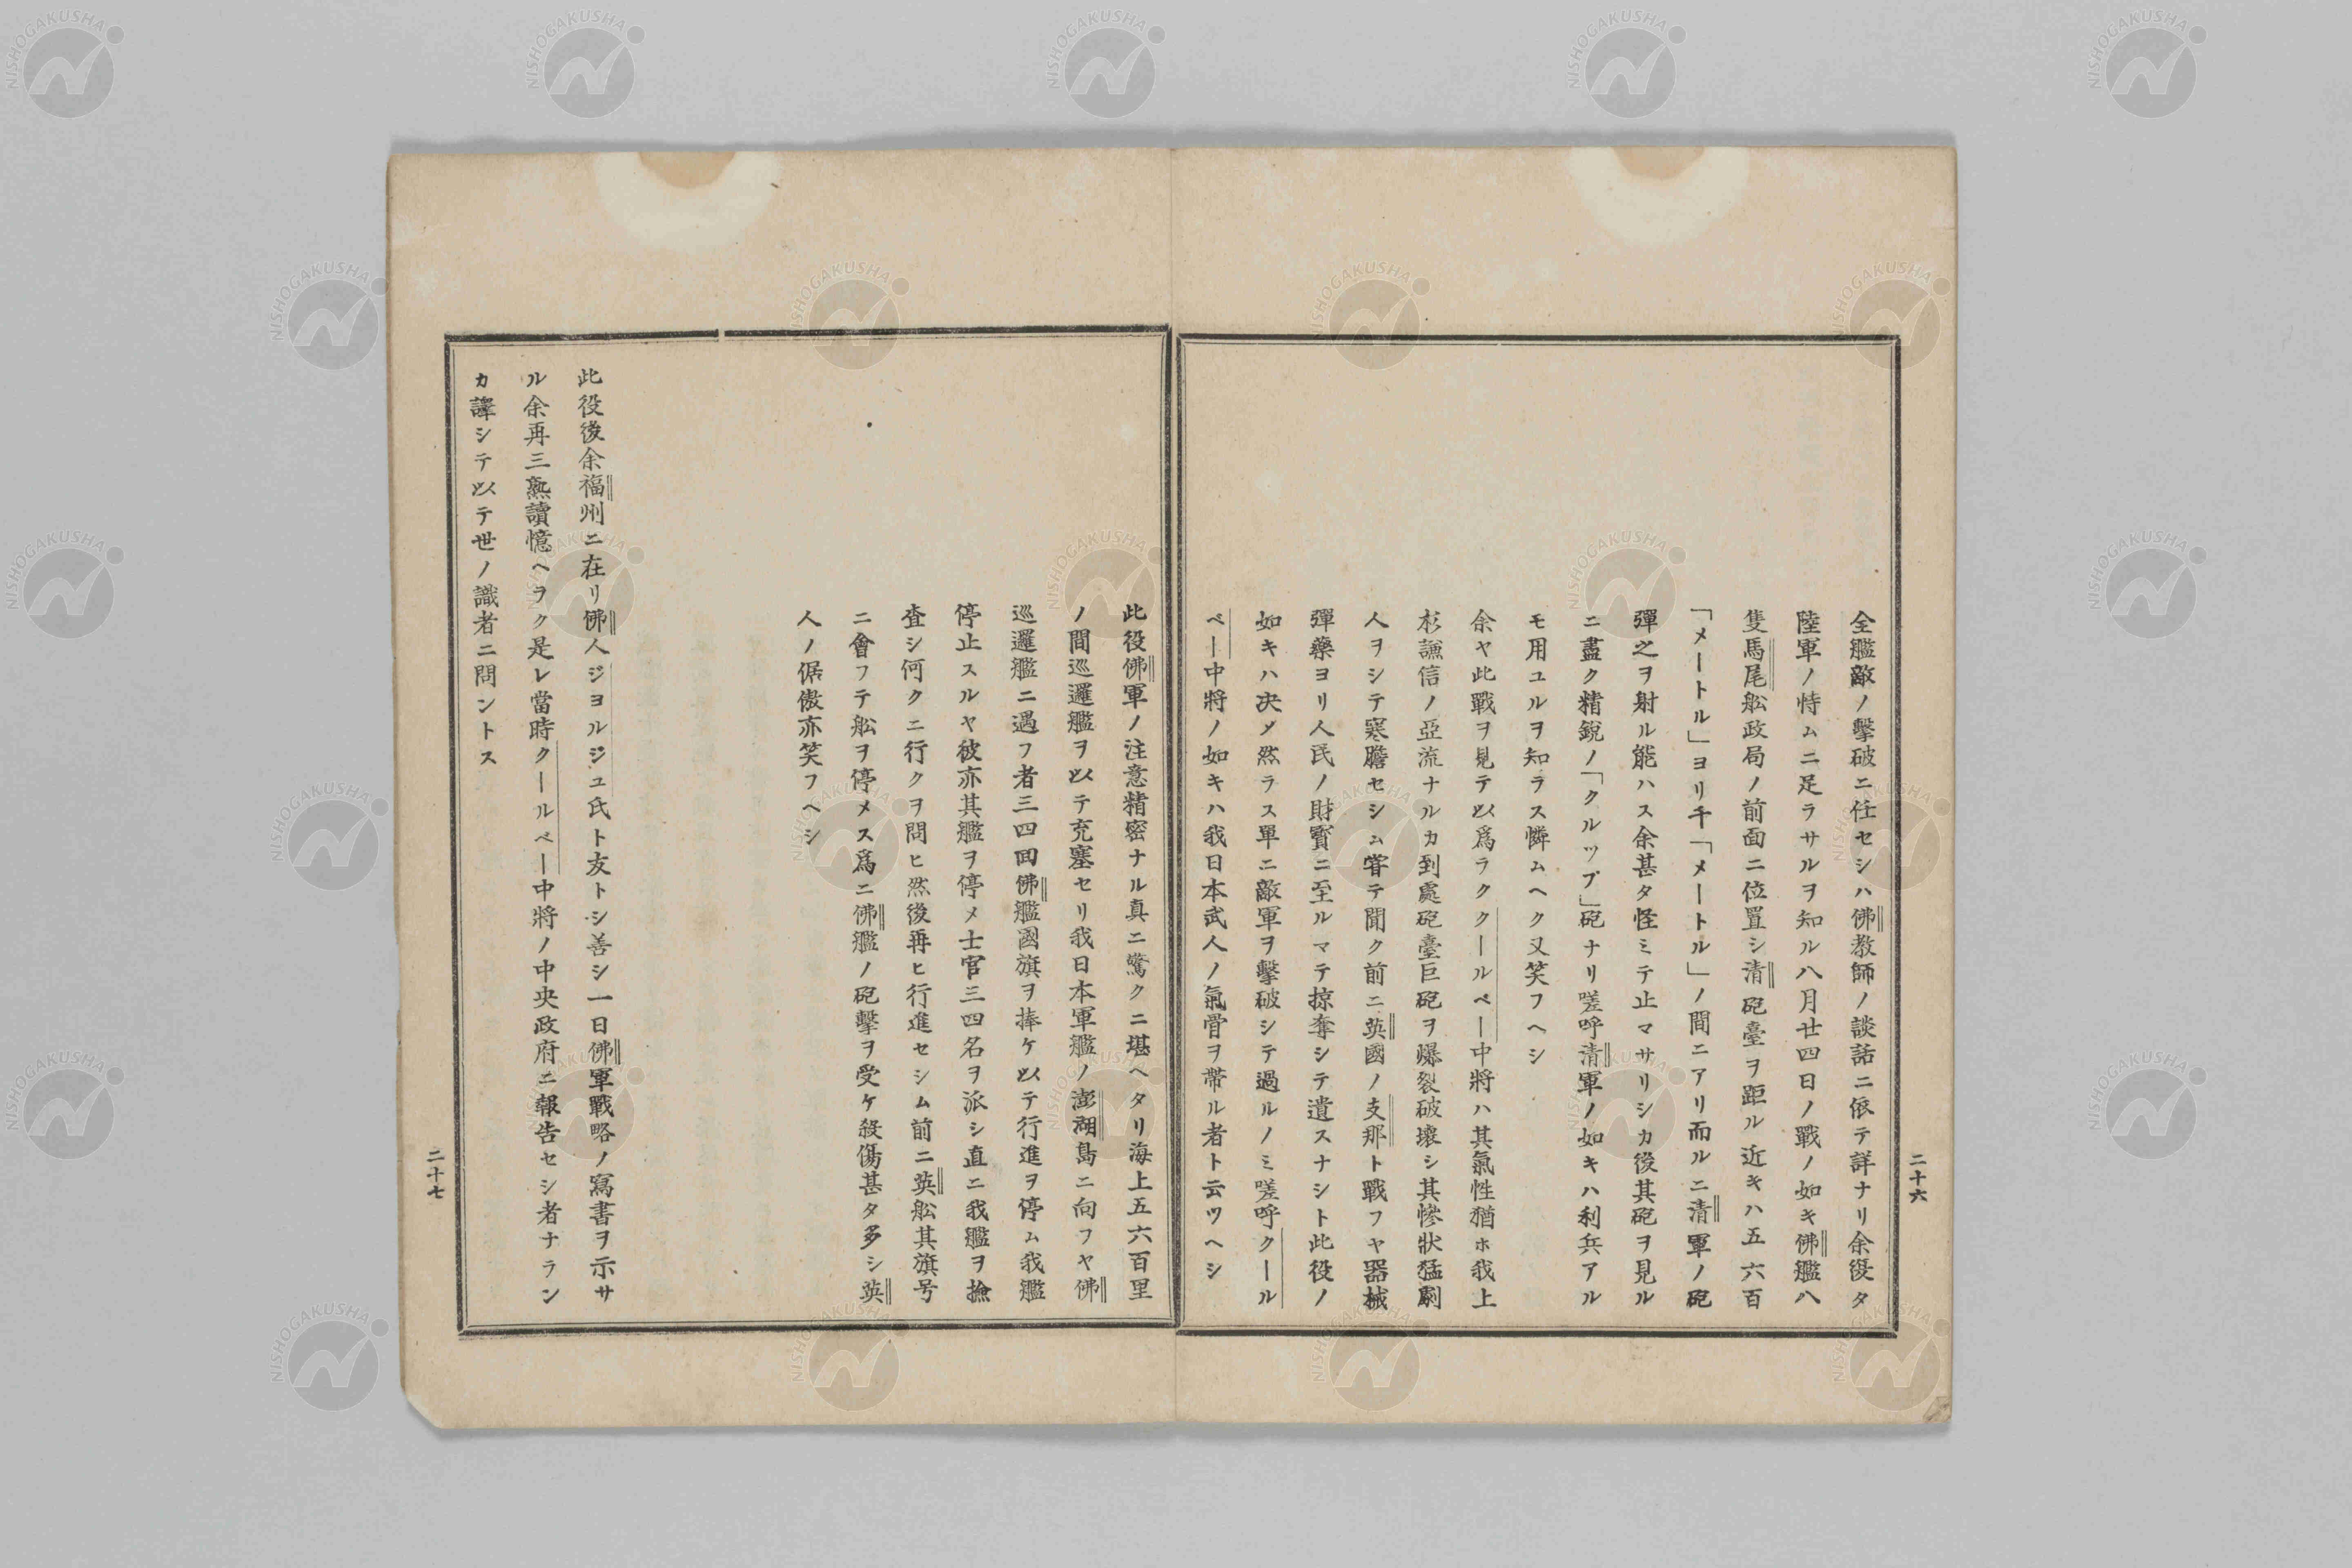 全艦敵ノ擊破ニ任セシハ佛教師ノ談話ニ依テ詳ナリ余復タ
陸軍ノ恃ムニ足ラサルヲ知ル八月廿四日ノ戰ノ如キ佛艦八
隻馬尾舩政局ノ前面ニ位置シ清砲臺ヲ距ル近キハ五六百
「メートル」ヨリ千「メートル」ノ間ニアリ而ルニ清軍ノ砲
彈之ヲ射ル能ハス余甚タ怪ミテ止マサリシカ後其砲ヲ見ル
ニ盡ク精銳ノ「クルップ」砲ナリ嗟呼清軍ノ如キハ利兵アル
モ用ユルヲ知ラス憐ムヘク又笑フヘシ
余ヤ此戰ヲ見テ以爲ラククールベー中將ハ其氣性猶ホ我上
杉謙信ノ亞流ナルカ到處砲臺巨砲ヲ爆裂破壞シ其慘狀猛劇
人ヲシテ寒膽セシム甞テ聞ク前ニ英國ノ支那ト戰フヤ器械
彈藥ヨリ人民ノ財寳ニ至ルマテ掠奪シテ遺スナシト此役ノ
如キハ决メ然ラス單ニ敵軍ヲ擊破シテ過ルノミ嗟呼クール
ベー中將ノ如キハ我日本武人ノ氣骨ヲ帶ル者ト云ツヘシ
二十六
此役佛軍ノ注意精密ナル真ニ驚クニ堪ヘタリ海上五六百里
ノ間巡邏艦ヲ以テ充塞セリ我日本軍艦ノ澎湖島ニ向フヤ佛
巡邏艦ニ遇フ者三四回佛艦國旗ヲ捧ケ以テ行進ヲ停ム我艦
停止スルヤ彼亦其艦ヲ停メ士官三四名ヲ派シ直ニ我艦ヲ撿
査シ何クニ行クヲ問ヒ然後再ヒ行進セシム前ニ英舩其旗号
ニ會フテ舩ヲ停メス爲ニ佛艦ノ砲擊ヲ受ケ殺傷甚タ多シ英
人ノ倨傲亦笑フヘシ
此役後余福州ニ在リ佛人ジヨルジュ氏ト友トシ善シ一日佛軍戰略ノ寫書ヲ示サ
ル余再三熟讀憶ヘヲク是レ當時クールベー中將ノ中央政府ニ報告セシ者ナラン
カ譯シテ以テ世ノ識者ニ問ントス
二十七
NISHOGAKUSHA